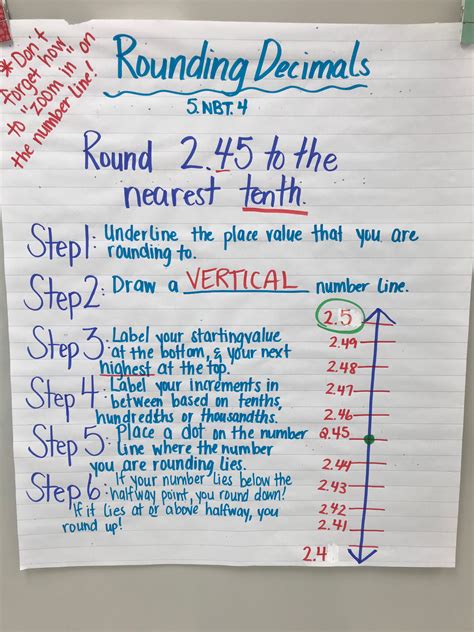 *Don't
forget how
to "zoom in" on
the number line!
Rounding Decimals
5.NBT.4
Round 2.45 to the
nearest tenth.
Step 1: Underline the place value that you are
rounding to.
Step 2: Draw a VERTICAL number line.
Step 3: Label your starting value
at the bottom, & your next
highest at the top.
Step 4: Label your increments in
between based on tenths,
hundredths or thousandths.
Step 5: Place a dot on the number
line where the number
you are rounding lies.
Step 6: If your number lies below the
halfway point, you round down!
If it lies at or above halfway, you
round up!
2.5
2.49
2.48
2.47
2.46
2.45
2.44
2.43
2.42
2.41
2.4